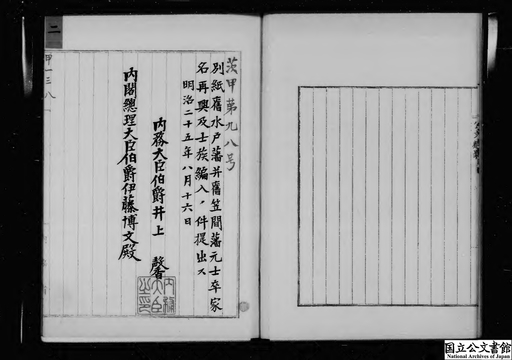 二
茨甲第九八号
別紙舊水戸藩并舊笠間藩元士卒家
名再興及士族編入ノ件提出ス
明治二十五年八月十六日
内務大臣伯爵井上馨
内閣總理大臣伯爵伊藤博文殿
内務大臣之印
甲一三八
国立公文書館
National Archives of Japan